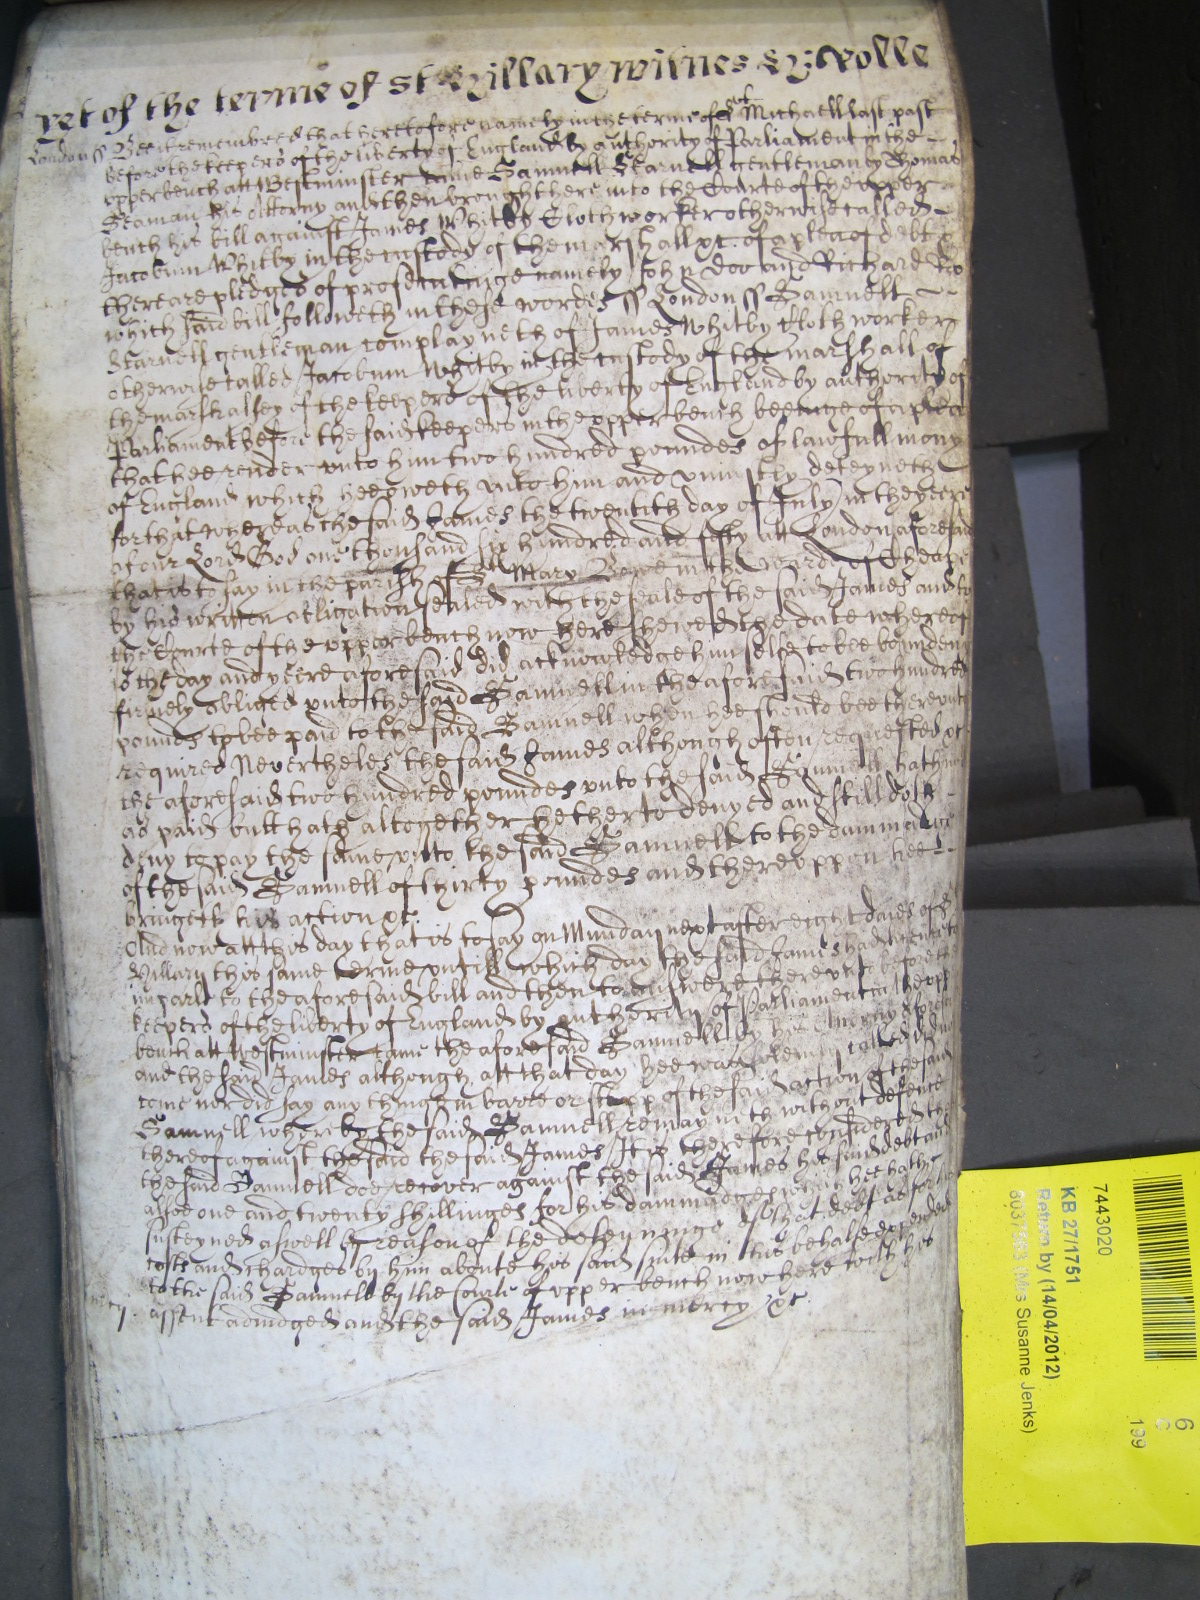 yet of the terme of st Hillary witnes H: Rolle
London ss Bee it remembred that heretofore namely in the terme of St Michaell last past
before the keepers of the liberty of England by authority of Parliament in the
upper bench att Westminster came Samuell Starnell gentleman by Thomas
Seaman his Attorny and then brought here into the Courte of the upper
bench his bill against James Whitby Clothworker otherwise called
Jacobum Whitby in the custody of the marshall &c. of a plea of debt &
there are pledges of prosecutinge namely John Doo and Richard Roo
which said bill followeth in these wordes ss London ss Samuell
Starnell gentleman complayneth of James Whitby Clothworker
otherwise called Jacobum Whitby in the custody of the marshall of
the marshalsey of the keepers of the liberty of England by authority of
Parliament before the said keepers in the upper bench beeinge of a plea
that hee render unto him two hundred poundes of lawfull mony
of England which hee oweth unto him and uniustly deteyneth
for that whereas the said James the twentith day of July in the yeere
of our Lord God one thousand six hundred and fifty att London aforesaid
that is to say in the parish of St Mary Bowe in the warde of Cheape
by his written obligation sealed with the seale of the said James and to
the Courte of the upper bench now here shewed the date whereof
is the day and yeere aforesaid did acknowledge himselfe to bee bounden
firmely obliged unto the said Samuell in the aforesaid two hundred
poundes to bee paid to the said Samuell when hee should bee thereunto
required Neverthelesse the said James although often requested &c.
the aforesaid two hundred poundes unto the said Samuell hath not
as paid butt hath altogether hetherto denyed and still doth
deny to pay the same unto the said Samuell to the dammadge
of the said Samuell of thirty poundes and thereuppon hee
bringeth his action &c.
And now att this day that is to say on Munday next after eight daies of St
Hillary this same terme untill which day the said James had licence to
imparle to the aforesaid bill and then to answere thereunto before the
keepers of the liberty of England by authority of Parliament in the upper
bench att Westminster came the aforesaid Samuell by his Attorny aforesaid
and the said James although att that day hee was solemnly called did not
come nor did say any thinge in barre or stopp of the said action of the said
Samuell whereby the said Samuell remayneth without defence
thereof against the said the said James It is therefore considered that
the said Samuell doe recover against the said James his said debt and
alsoe one and twenty shillinges for his dammadges which hee hath
susteyned aswell by reason of the deteyninge of that debt as for his
costs and chardges by him about his said suite in this behalfe expended
to the said Samuell by the Courte of upper bench now here with his
assent adiudged and the said James in mercy &c.
7443020
KB 27/1751
Return by (14/04/2012)
(Mrs Susanne Jenks)
6
199